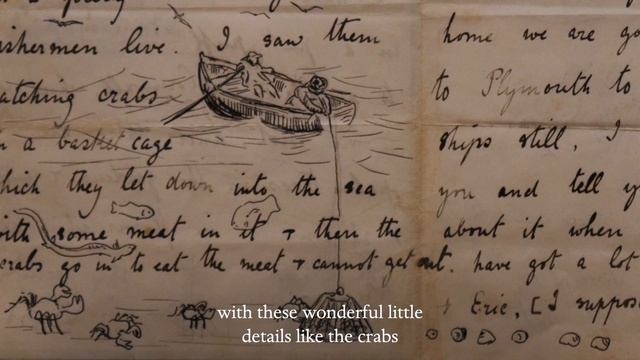 ishermen live. I saw them
atching crabs
n a basket cage
hich they let down into the sea
with some meat in it + then the
crabs go in to eat the meat + cannot get out.
home we are go
to Plymouth to
ships still, I
you and tell y
about it when
have got a lot
+ Eric, [I suppos
with these wonderful little
details like the crabs